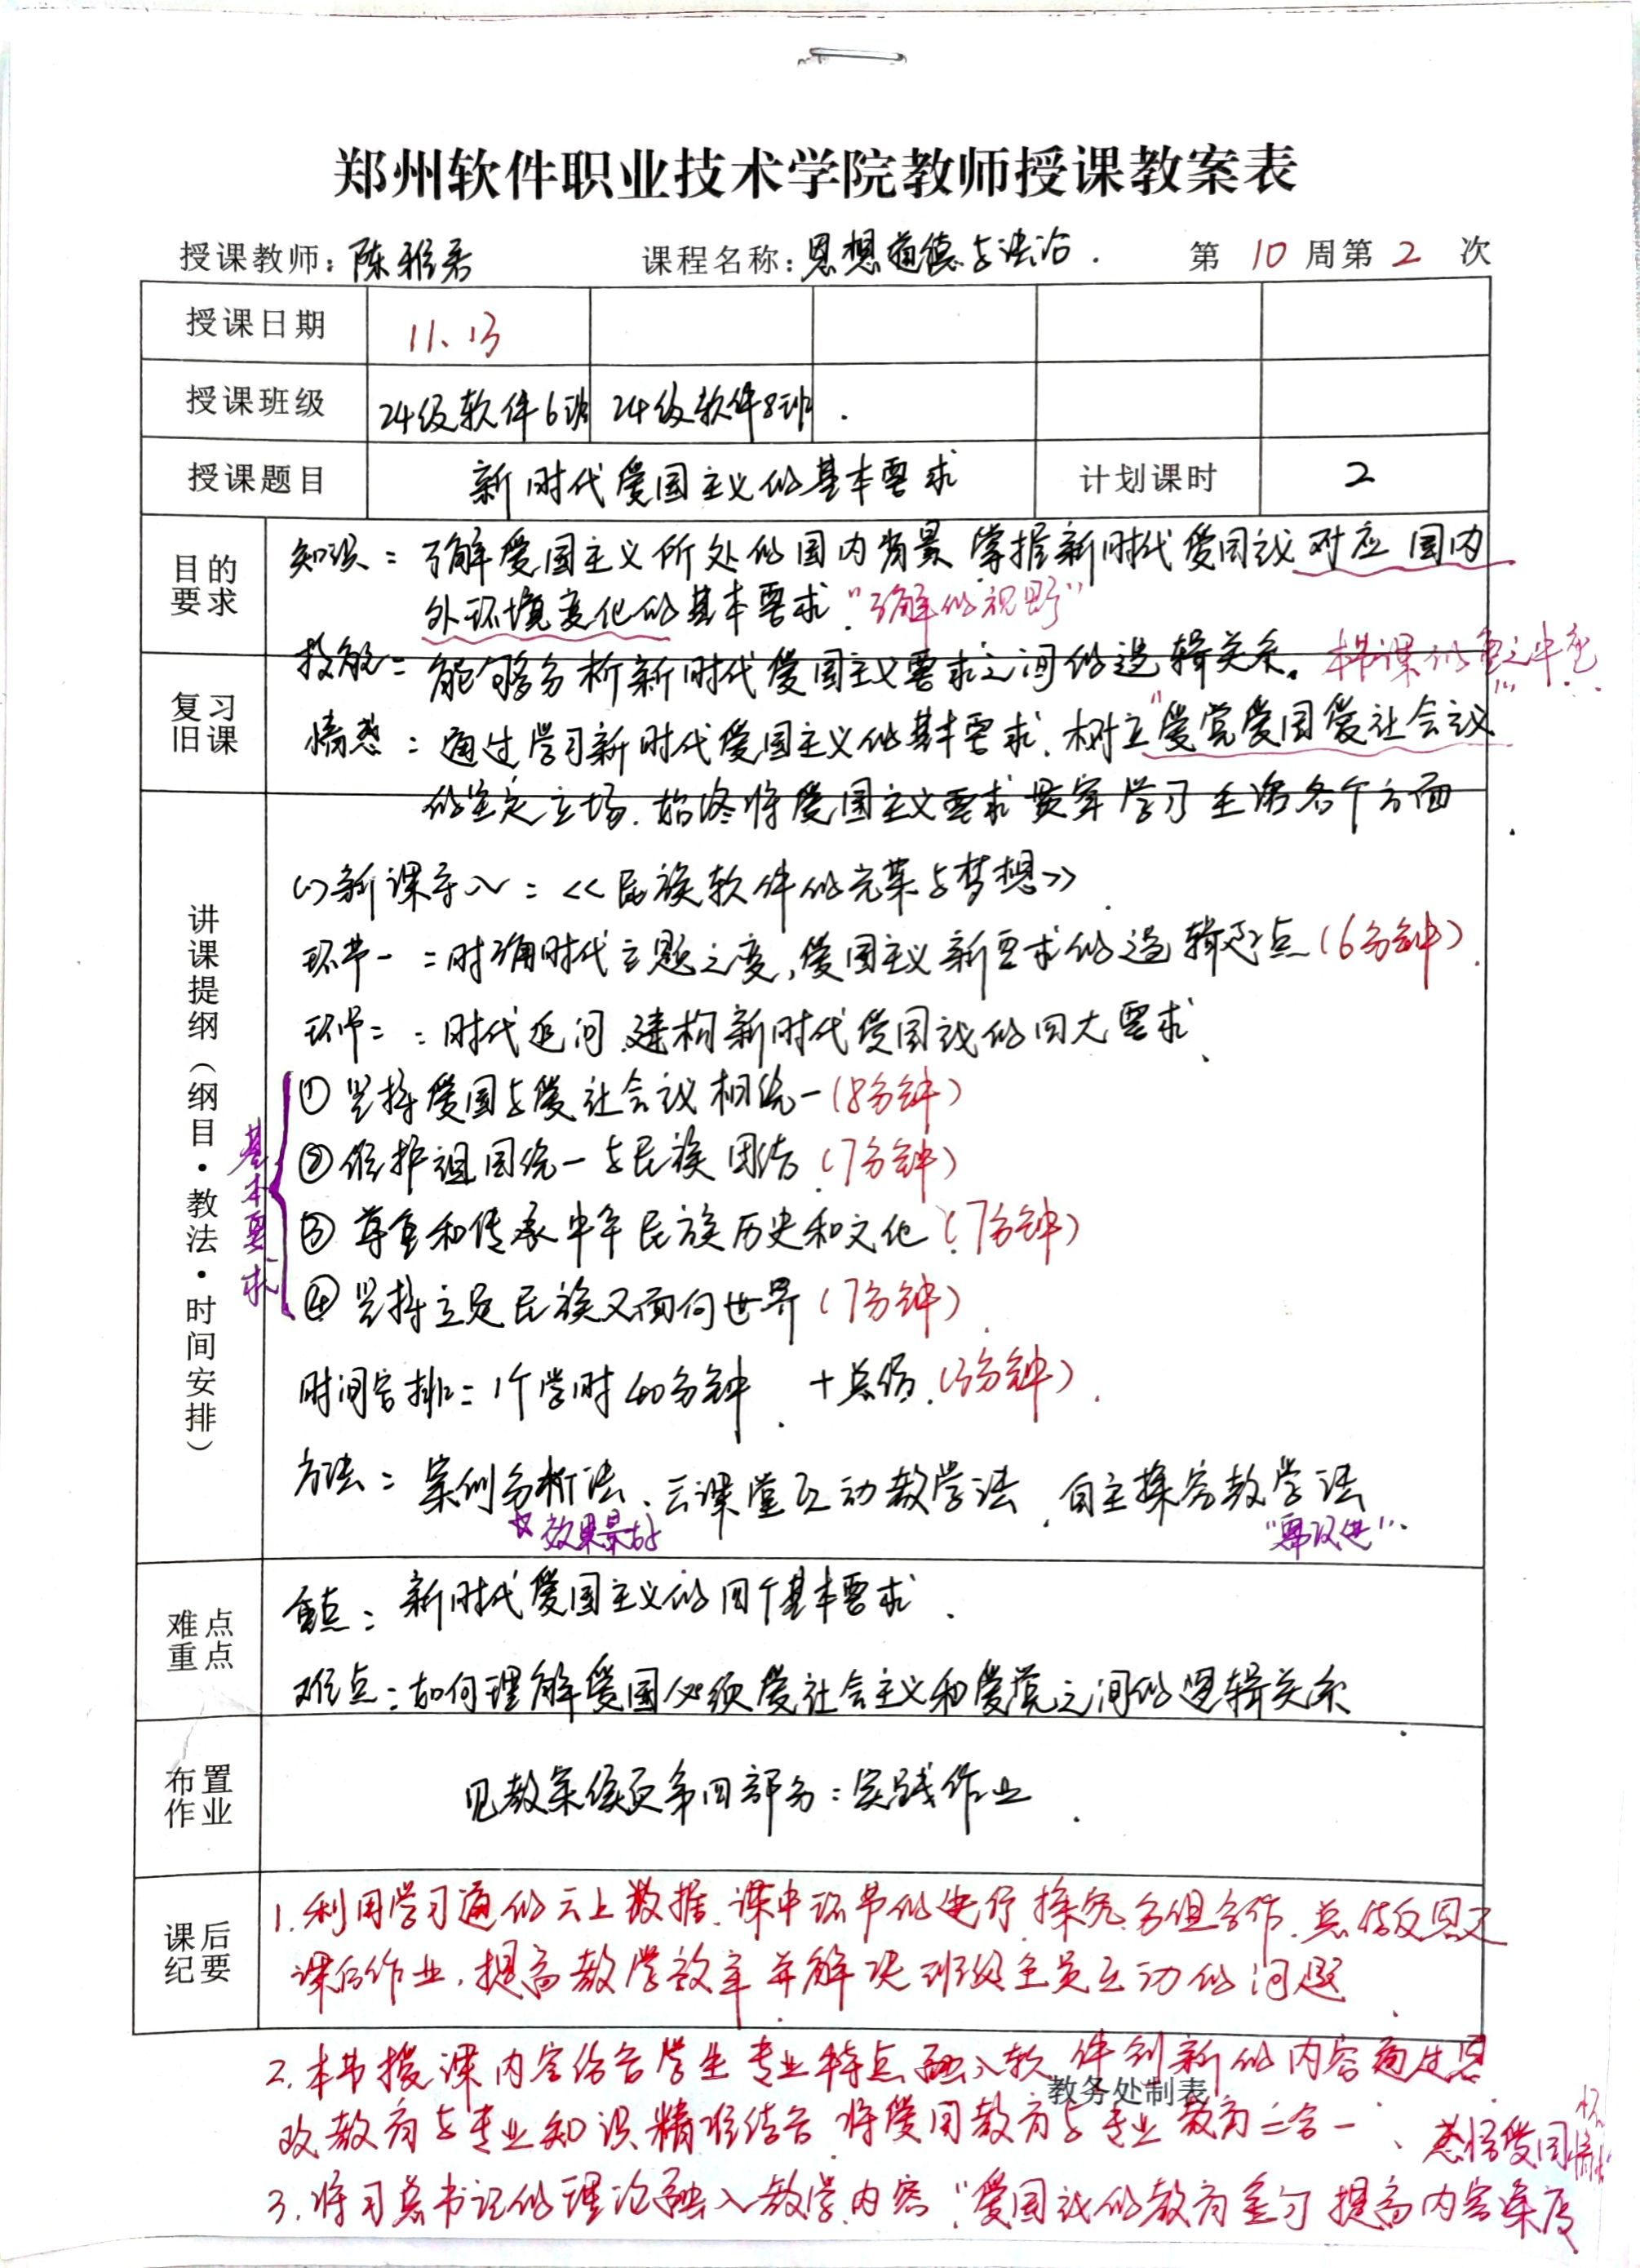 郑州软件职业技术学院教师授课教案表
授课教师：陈雅 课程名称：思想道德与法治. 第 10 周第 2 次
授课日期 11.13
授课班级 24级软件6班 24级软件8班.
授课题目 新时代爱国主义的基本要求 计划课时 2
目的要求
知识：了解爱国主义所处的国内背景 掌握新时代爱国主义对应国内
外环境变化的基本要求."了解的视野"
技能：能够分析新时代爱国主义要求之间的逻辑关系. 本节课的重之中重
复习旧课
情感：通过学习新时代爱国主义的基本要求.树立"爱党爱国爱社会主义
的坚定立场.始终将爱国主义要求贯穿学习生活各个方面.
讲课提纲（纲目·教法·时间安排）
(1)新课导入：《民族软件的光荣与梦想》.
环节一：明确时代主题之变,爱国主义新要求的逻辑起点(6分钟).
环节二：时代追问.建构新时代爱国主义的四大要求.
基本要求
①坚持爱国与爱社会主义相统一(8分钟)
②维护祖国统一与民族团结(7分钟)
③尊重和传承中华民族历史和文化(7分钟)
④坚持立足民族又面向世界(7分钟).
时间安排：1个学时40分钟. +总结.(5分钟).
方法：案例分析法、云课堂互动教学法、自主探究教学法
效果最好 "要改进".
难点重点
重点：新时代爱国主义的四个基本要求.
难点：如何理解爱国必须爱社会主义和爱党之间的逻辑关系.
布置作业
见教案续页第四部分：实践作业.
课后纪要
1.利用学习通的云上数据.课中环节的进行探究.分组合作.总结反思及
课后作业.提高教学效率并解决班级全员互动的问题.
2.本节授课内容结合学生专业特点融入软件创新的内容通过思
教务处制表
政教育与专业知识精准结合.将爱国教育与专业教育二合一、感悟爱国情怀
3.将习总书记的理论融入教学内容."爱国主义的教育金句提高内容深度